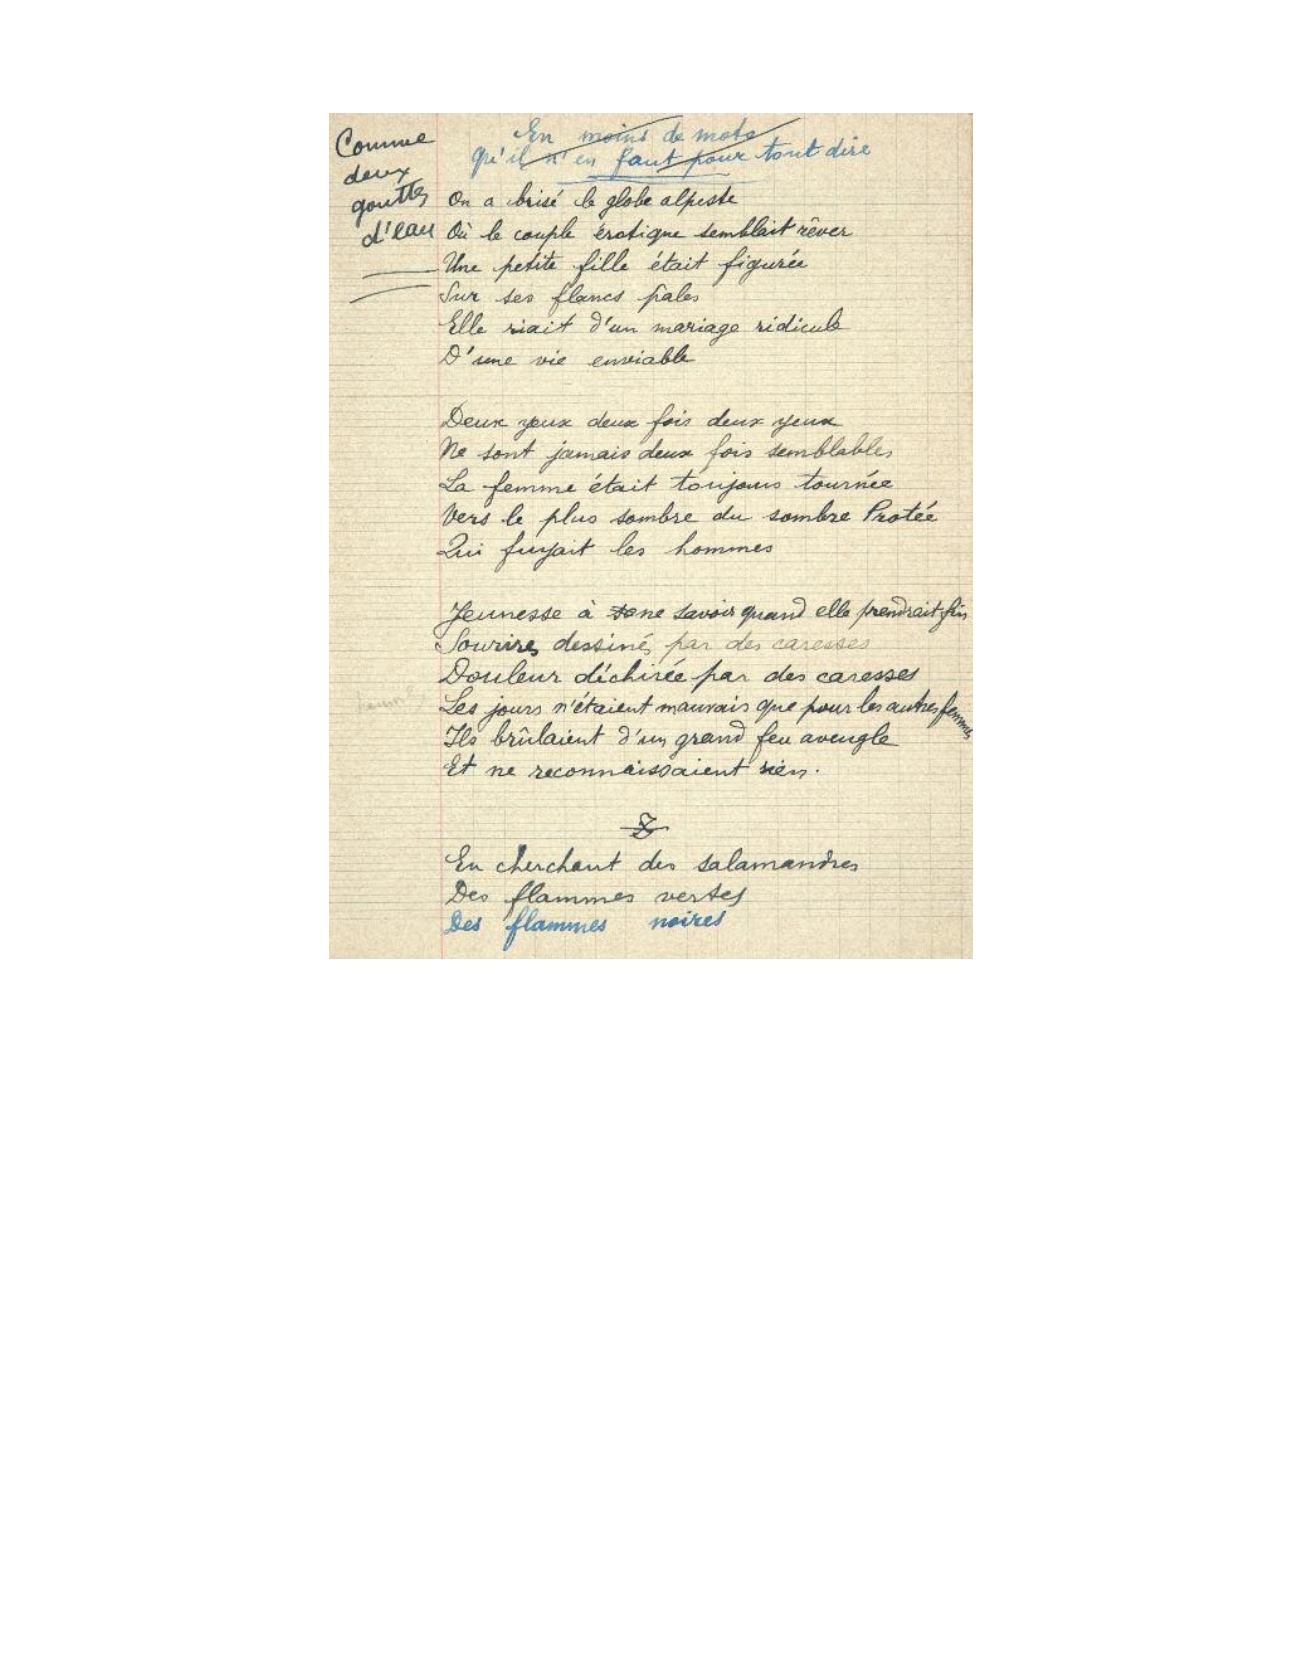 Comme
deux
gouttes
d'eau
En moins de mots
qu'il n'en faut pour tout dire
On a brisé le globe alpestre
Où le couple érotique semblait rêver
Une petite fille était figurée
Sur ses flancs pales
Elle riait d'un mariage ridicule
D'une vie enviable
Deux yeux deux fois deux yeux
Ne sont jamais deux fois semblables
La femme était toujours tournée
Vers le plus sombre du sombre Protée
Qui fuyait les hommes
Jeunesse à ne savoir quand elle prendrait fin
Sourires dessinés par des caresses
Douleur déchirée par des caresses
Les jours n'étaient mauvais que pour les autres femmes
Ils brûlaient d'un grand feu aveugle
Et ne reconnaissaient rien.
En cherchant des salamandres
Des flammes vertes
Des flammes noires